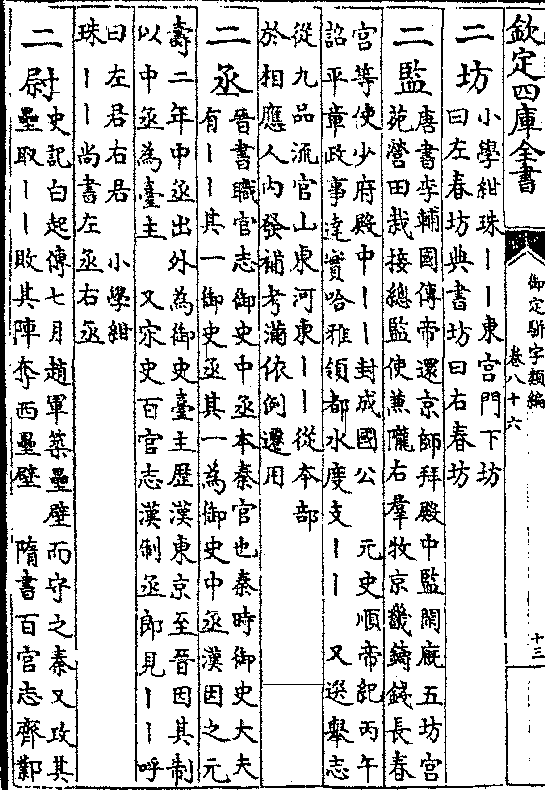 欽定四庫全書
御定駢字類編
卷八十六
十三
二坊
小學紺珠丨丨東宮門下坊
曰左春坊典書坊曰右春坊
二監
唐書李輔國傳帝還京師拜殿中監閑廐五坊宮
苑營田栽接總監使兼隴右羣牧京畿鑄錢長春
宮等使少府殿中丨丨封成國公 元史順帝紀丙午
詔平章政事達實哈雅領都水度支丨丨 又選舉志
從九品流官山東河東丨丨從本部
於相應人內發補考滿依例遷用
二丞
晉書職官志御史中丞本秦官也秦時御史大夫
有丨丨其一御史丞其一為御史中丞漢因之元
壽二年中丞出外為御史臺主歷漢東京至晉因其制
以中丞為臺主 又宋史百官志漢制丞郎見丨丨呼
曰左君右君 小學紺
珠丨丨尚書左丞右丞
二尉
史記白起傳七月趙軍築壘壁而守之秦又攻其
壘取丨丨敗其陣奪西壘壁 隋書百官志齊鄴